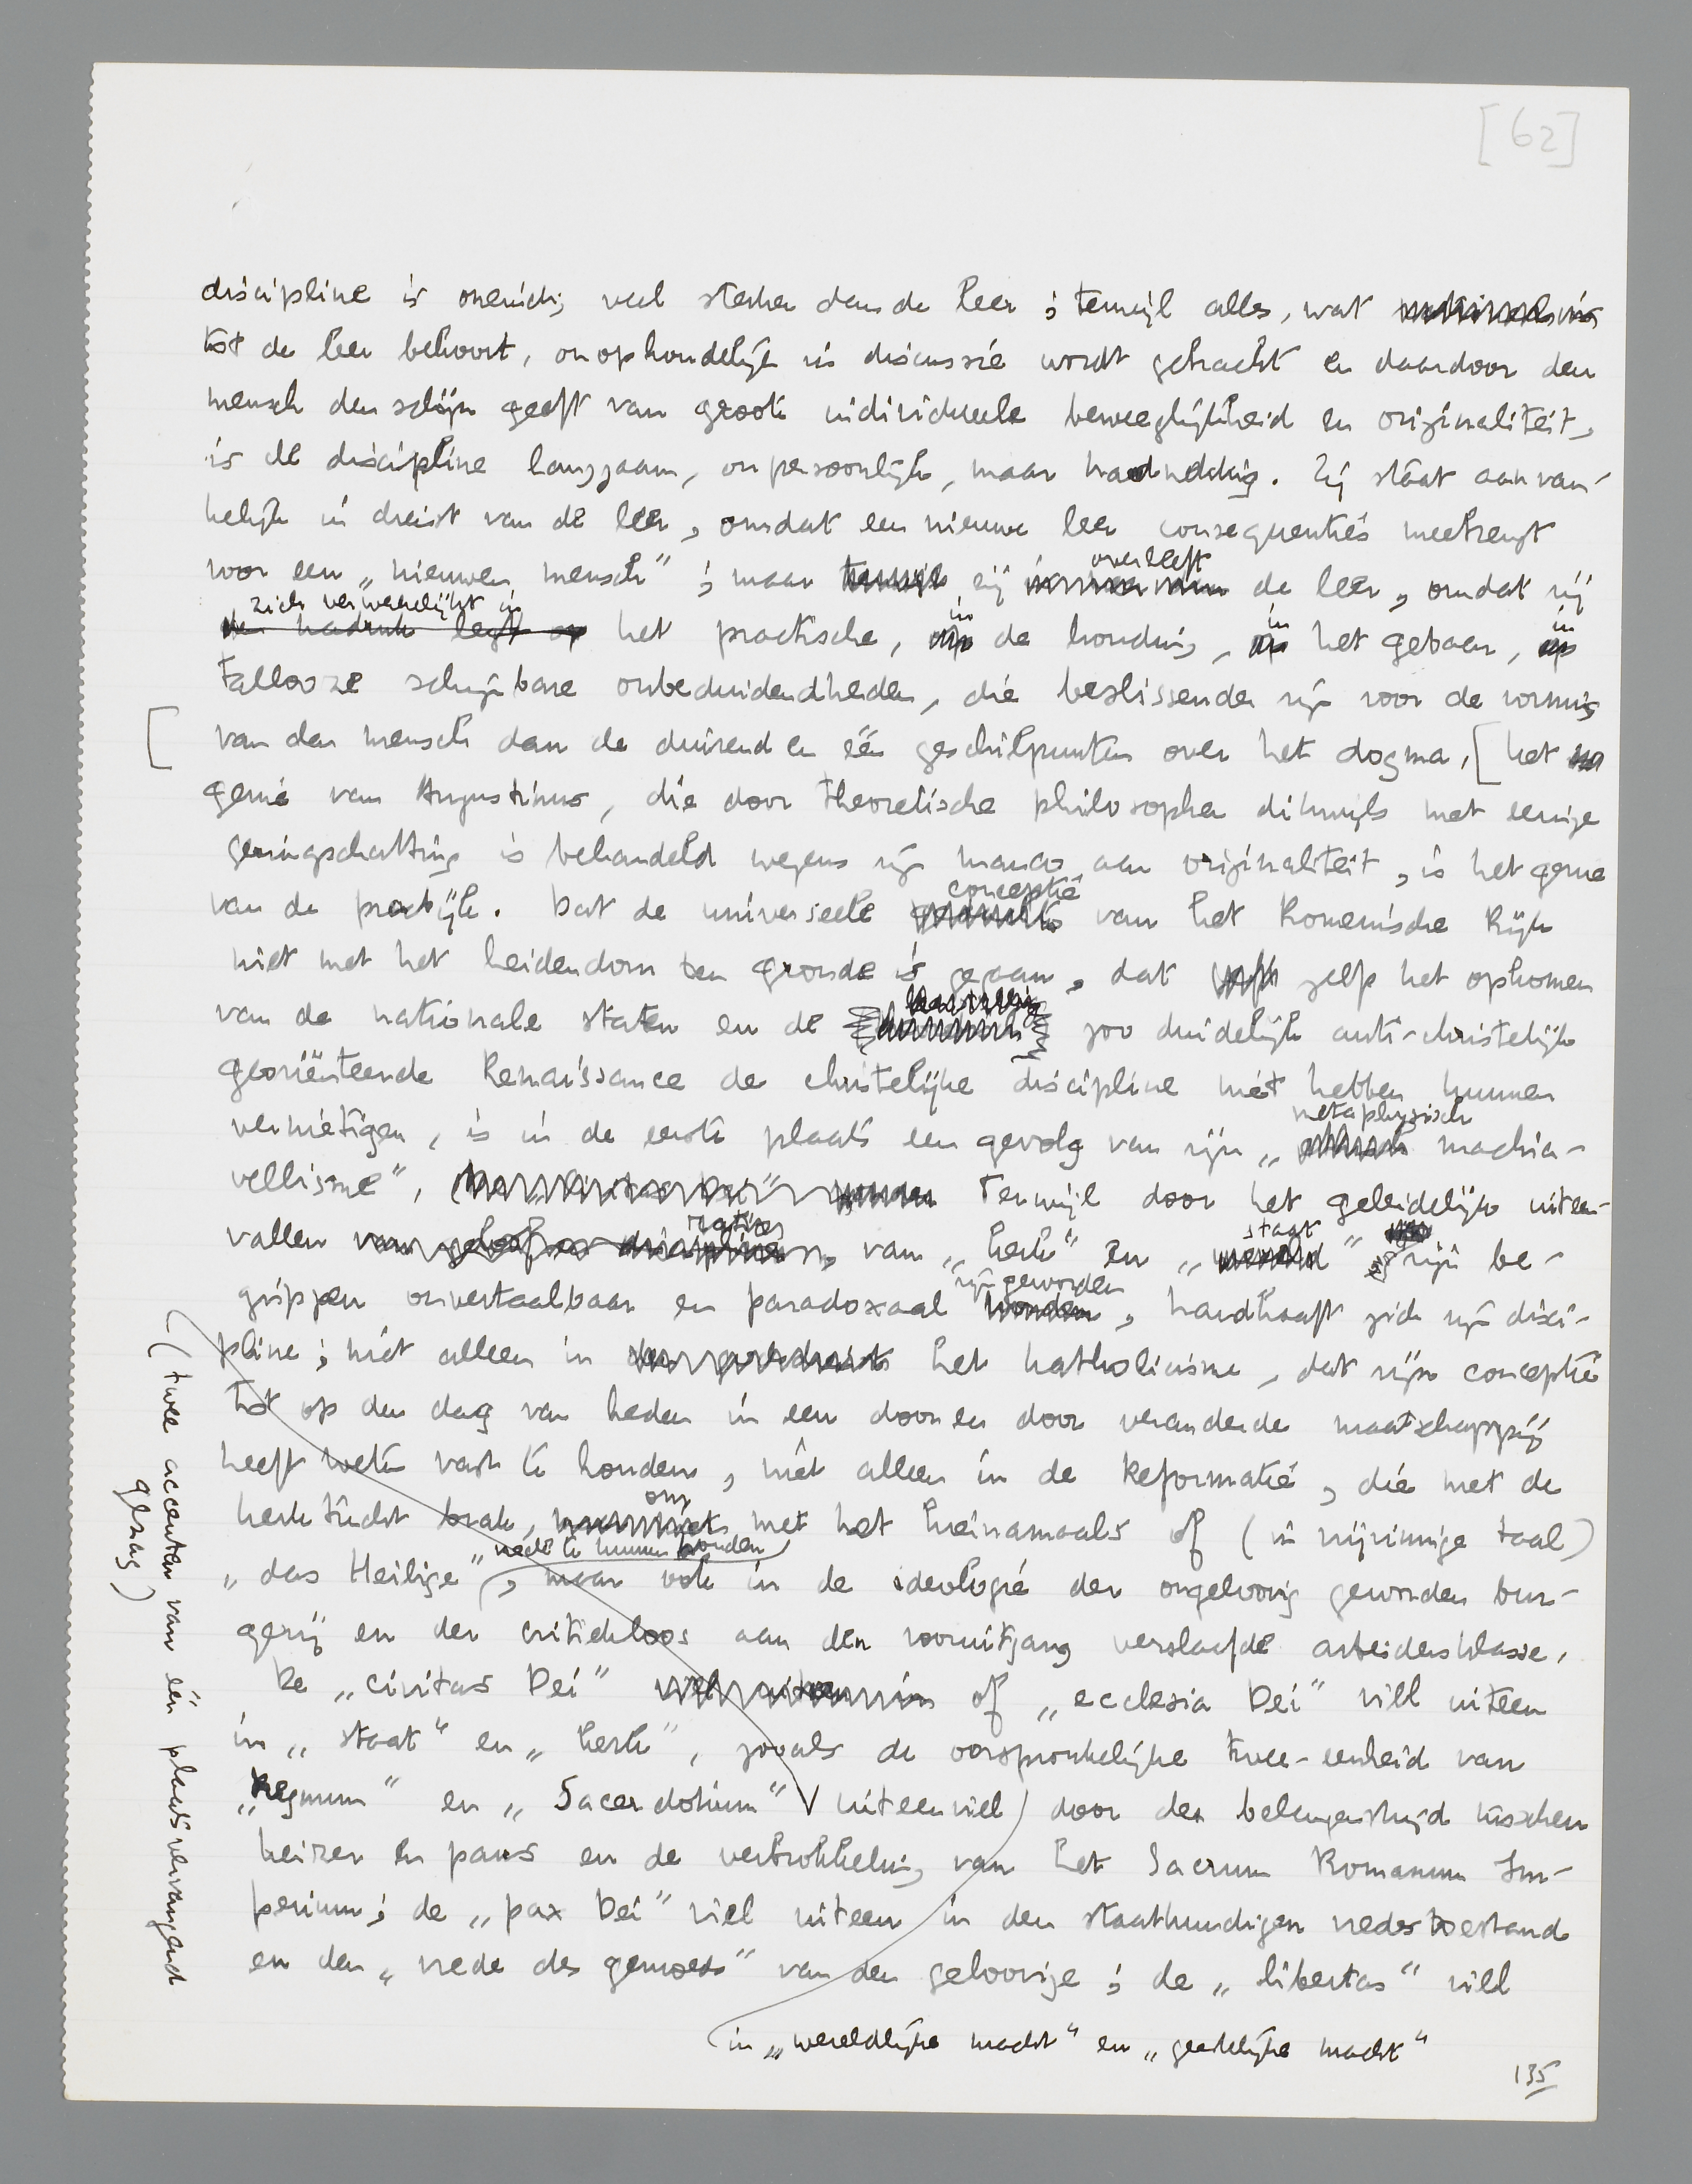 [62]
discipline is oneindig veel sterker dan de leer; terwijl alles, wat
tot de leer behoort, onophoudelijk in discussie wordt gebracht en daardoor den
mensch den schijn geeft van groote individueele beweeglijkheid en originaliteit,
is de discipline langzaam, onpersoonlijk, maar hardnekkig. Zij staat aanvan-
kelijk in dienst van de leer, omdat een nieuwe leer consequenties meebrengt
voor een „nieuwen mensch"; maar zij overleeft de leer, omdat zij
zich verwerkelijkt in het practische, in de houding, in het gebaar, in
tallooze schijnbare onbeduidendheden, die beslissender zijn voor de vorming
[ van den mensch dan de duizend en één geschilpunten over het dogma. [het
genie van Augustinus, die door theoretische philosophen dikwijls met eenige
geringschatting is behandeld wegens zijn manco aan originaliteit, is het genie
van de practijk. Dat de universeele conceptie van het Romeinsche Rijk
niet met het heidendom ten gronde is gegaan, dat zelfs het opkomen
van de nationale staten en de zoo duidelijk anti-christelijk
georiënteerde Renaissance de christelijke discipline niet hebben kunnen
vernietigen, is in de eerste plaats een gevolg van zijn „metaphysisch machia-
vellisme", Terwijl door het geleidelijk uiteen-
vallen van „kerk" en „staat" zijn be-
grippen onvertaalbaar en paradoxaal zijn geworden, handhaaft zich zijn disci-
pline; niet alleen in het katholicisme, dat zijn conceptie
tot op den dag van heden in een door en door veranderde maatschappij
heeft weten vast te houden, niet alleen in de Reformatie, die met de
kerktucht brak, om met het hiernamaals of (in vrijzinnige taal)
„das Heilige" vrede te kunnen houden, maar ook in de ideologie der ongeloovig geworden bur-
gerij en der critiekloos aan den vooruitgang verslaafde arbeidersklasse.
De „civitas Dei" of „ecclesia Dei" viel uiteen
in „staat" en „kerk", zooals de oorspronkelijke twee-eenheid van
„Regnum" en „Sacerdotium" (twee accenten van één plaatsvervangend
gezag)
uiteenviel door den belangenstrijd tusschen
keizer en paus en de verbrokkeling van het Sacrum Romanum Im-
perium; de „pax Dei" viel uiteen in den staatkundigen vredestoestand
en den „vrede des gemoeds" van den geloovige; de „libertas" viel
in „wereldlijke macht" en „geestelijke macht"
135